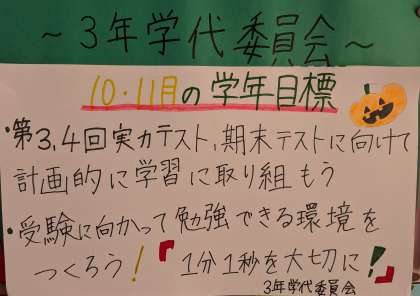 ~3年学代委員会~
10・11月の学年目標
・第3,4回実力テスト,期末テストに向けて
計画的に学習に取り組もう
・受験に向かって勉強できる環境を
つくろう！『1分1秒を大切に！』
3年学代委員会